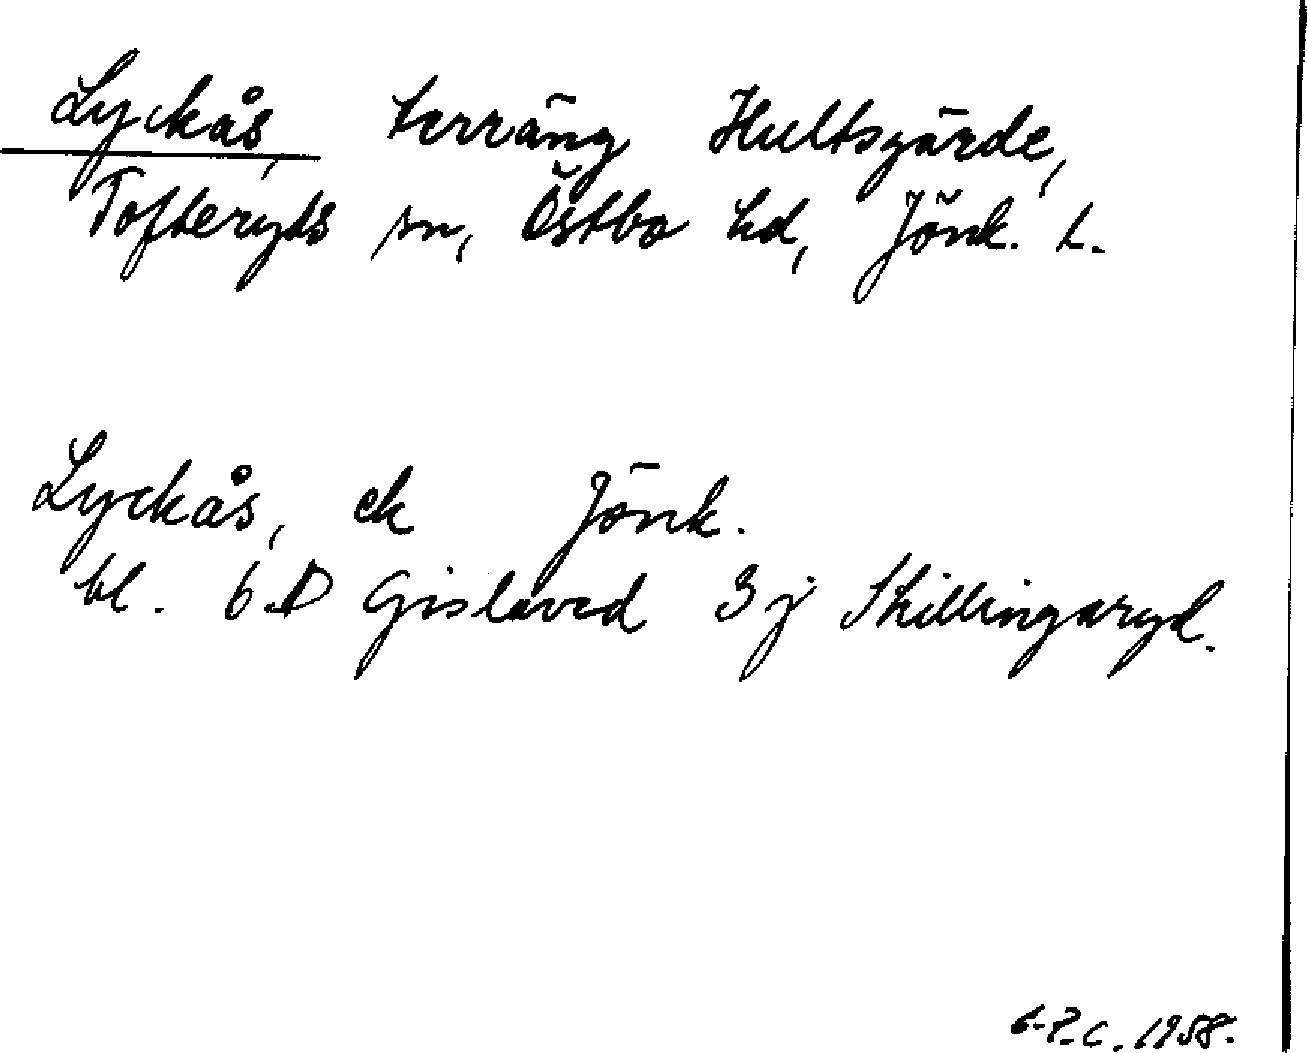 Lyckås, terräng Hultsgärde,
Tofteryds sn, Östbo hd, Jönk. L.
Lyckås, ek Jönk.
bl. 6.D Gislaved 3 j Skillingaryd.
G-P.C. 1958.